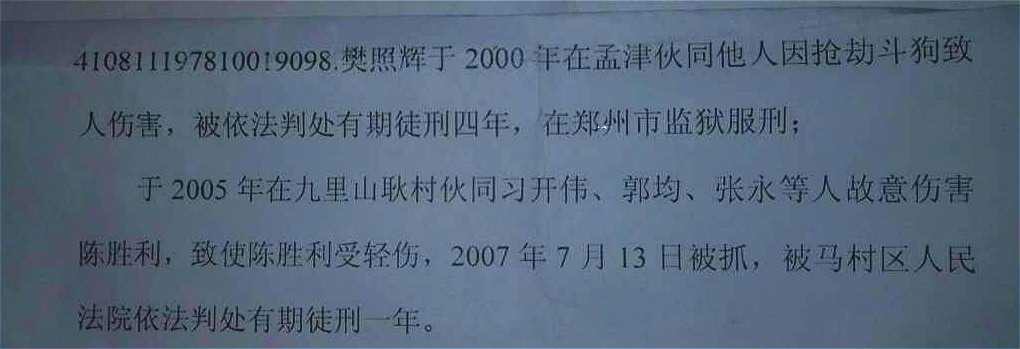 410811197810019098.樊照辉于 2000 年在孟津伙同他人因抢劫斗狗致
人伤害，被依法判处有期徒刑四年，在郑州市监狱服刑；
于 2005 年在九里山耿村伙同习开伟、郭均、张永等人故意伤害
陈胜利，致使陈胜利受轻伤，2007 年 7 月 13 日被抓，被马村区人民
法院依法判处有期徒刑一年。